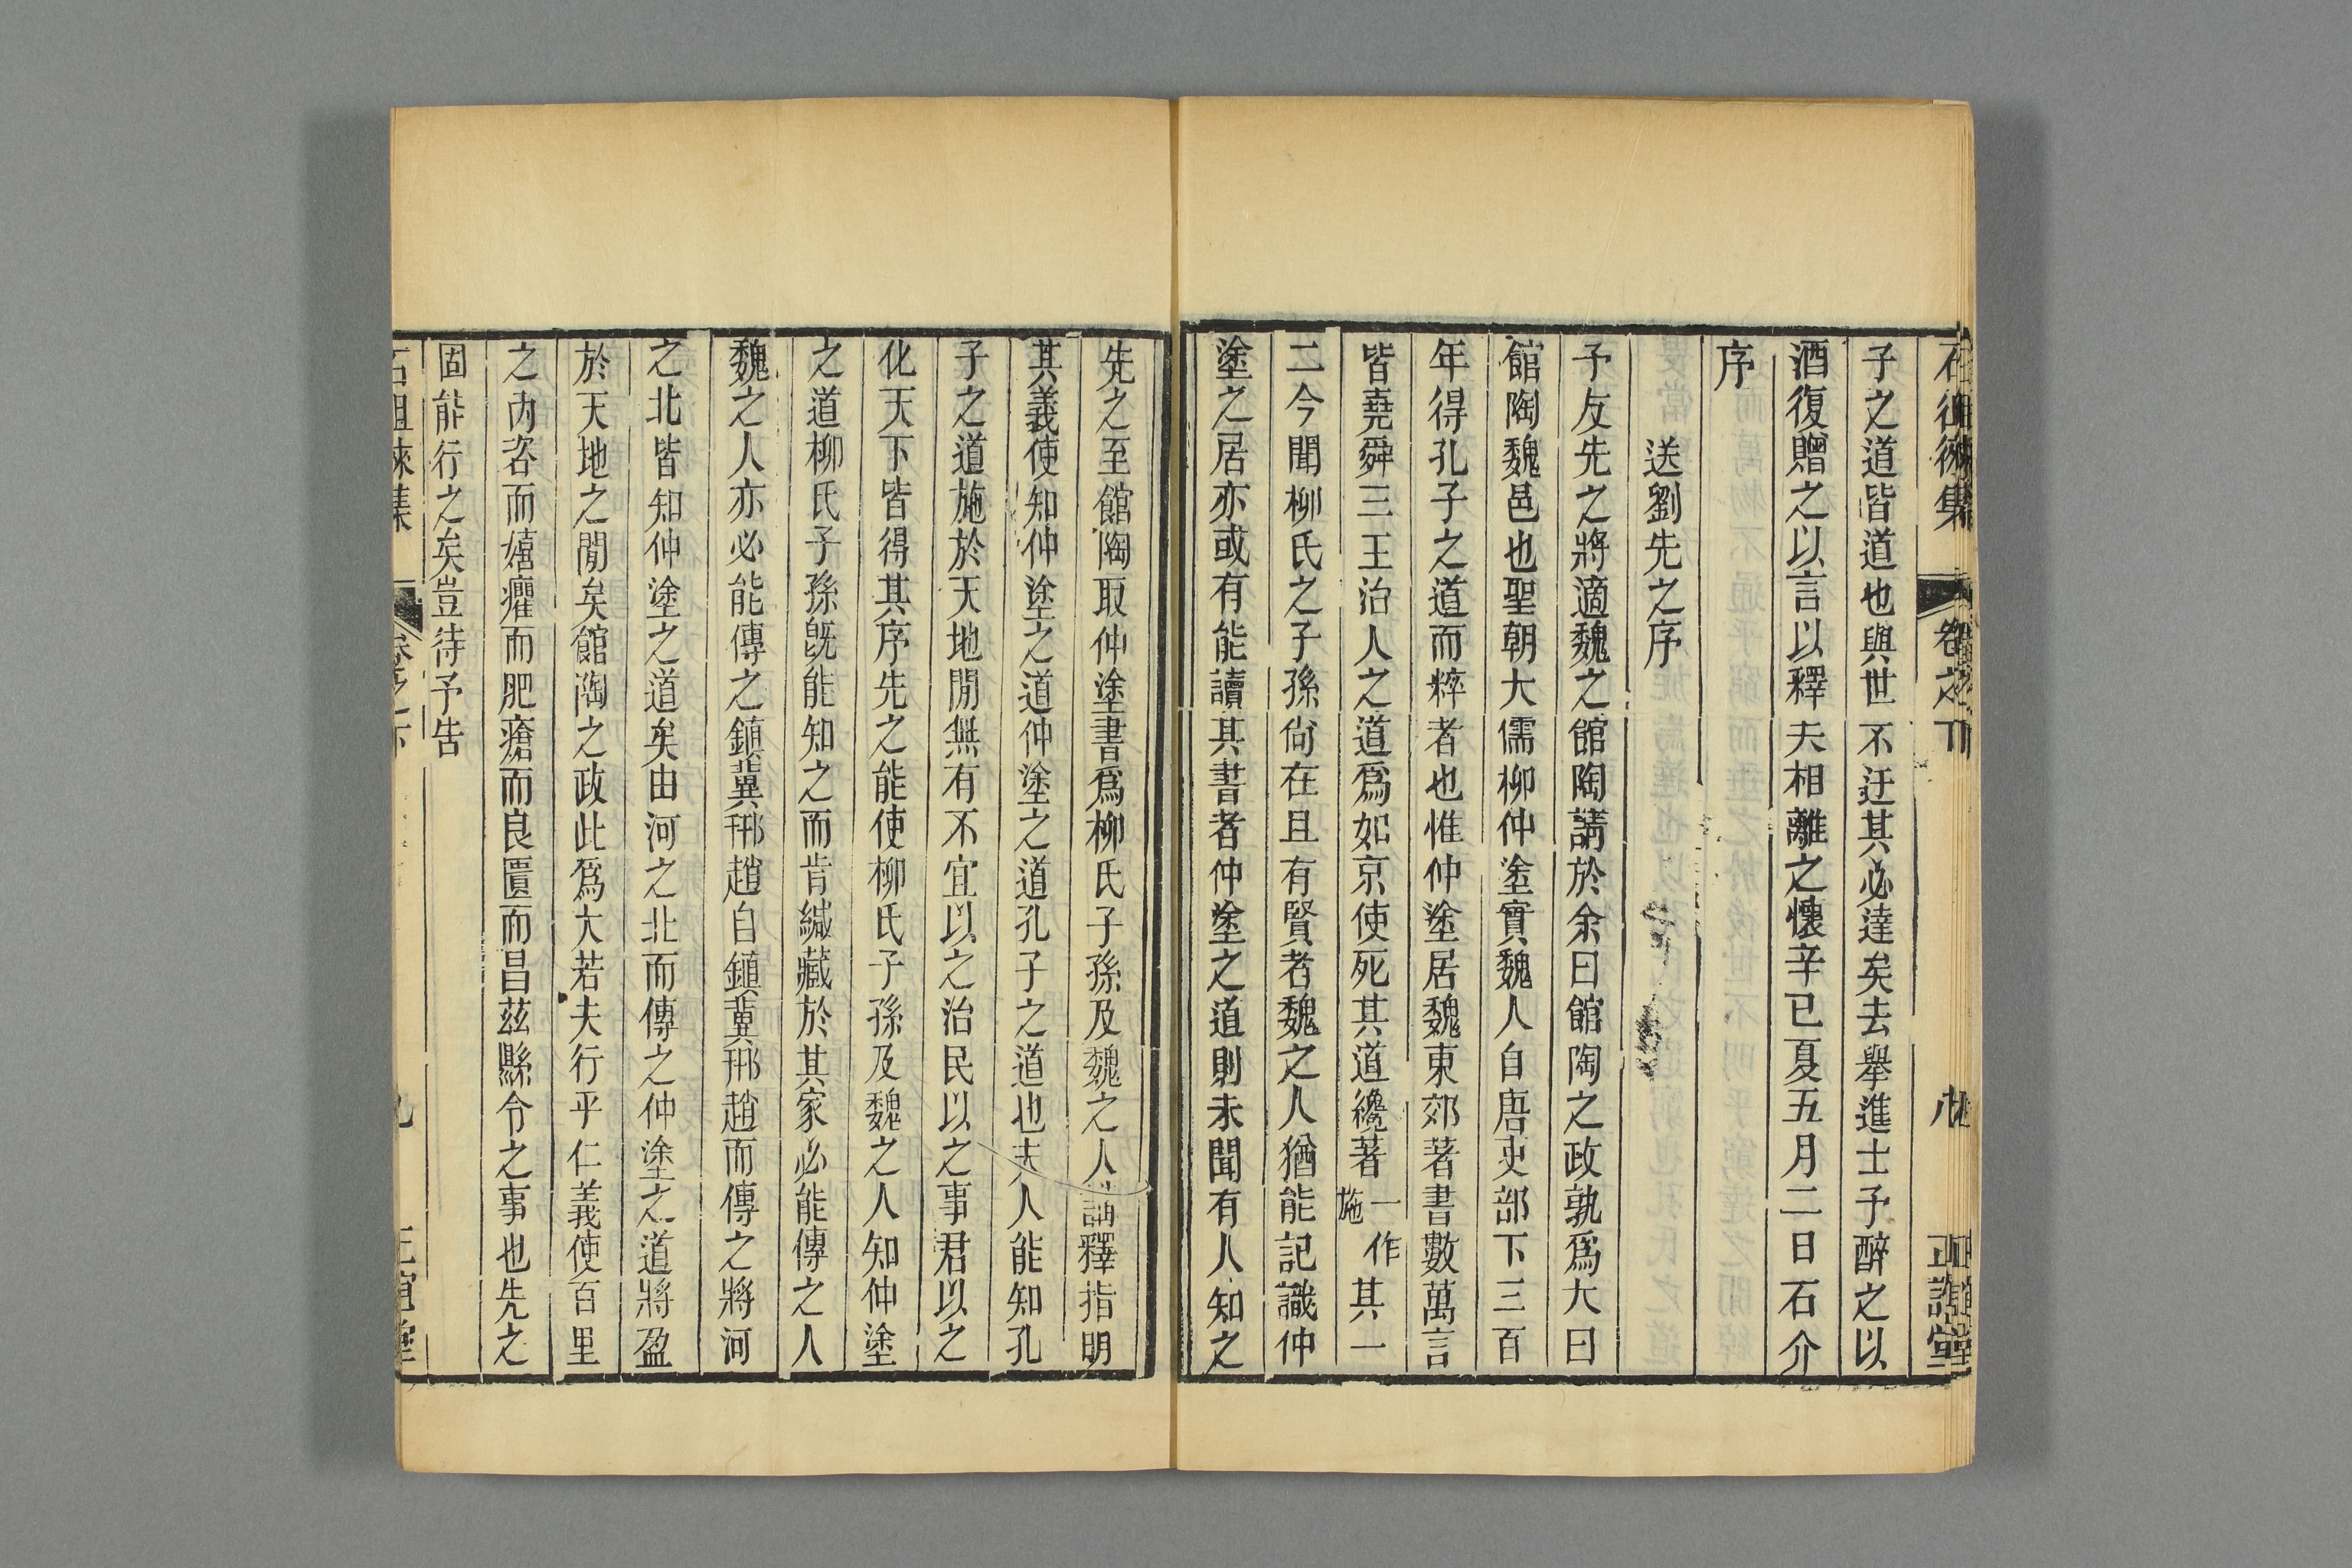 石徂徠集 卷之下 八 正誼堂
子之道皆道也與世不迂其必達矣去舉進士予醉之以
酒復贈之以言以釋夫相離之懷辛巳夏五月二日石介
序
送劉先之序
予友先之將適魏之館陶請於余曰館陶之政孰爲大曰
館陶魏邑也聖朝大儒柳仲塗實魏人自唐吏部下三百
年得孔子之道而粹者也惟仲塗居魏東郊著書數萬言
皆堯舜三王治人之道爲如京使死其道纔著一作施其一
二今聞柳氏之子孫尙在且有賢者魏之人猶能記識仲
塗之居亦或有能讀其書者仲塗之道則未聞有人知之
先之至館陶取仲塗書爲柳氏子孫及魏之人講釋指明
其義使知仲塗之道仲塗之道孔子之道也夫人能知孔
子之道施於天地閒無有不宜以之治民以之事君以之
化天下皆得其序先之能使柳氏子孫及魏之人知仲塗
之道柳氏子孫旣能知之而肯緘藏於其家必能傳之人
魏之人亦必能傳之鎮冀邢趙自鎮冀邢趙而傳之將河
之北皆知仲塗之道矣由河之北而傳之仲塗之道將盈
於天地之閒矣館陶之政此爲大若夫行乎仁義使百里
之內咨而嬉癯而肥瘡而良匱而昌茲縣令之事也先之
固能行之矣豈待予告
石徂徠集 卷之下 九 正誼堂